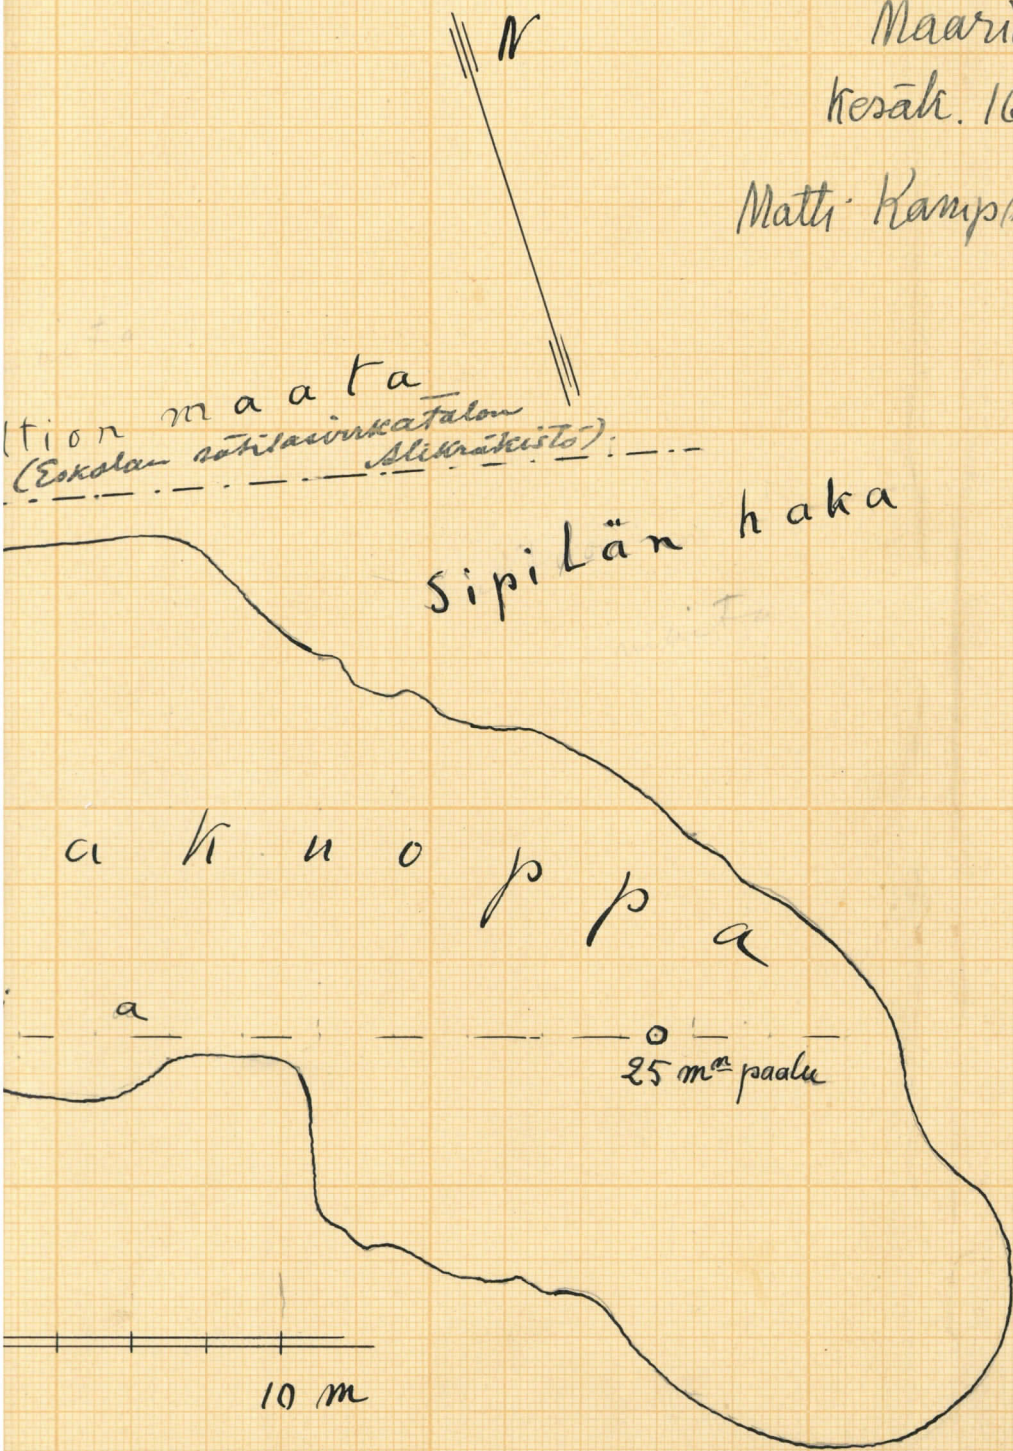 N
Maari
Kesäk. 16
Matti Kamp
ltion maata
(Eskolan sotilasvirkatalon
Alikräkistö).
Sipilän haka
a k n o p p a
a
25 mⁿ paalu
10 m